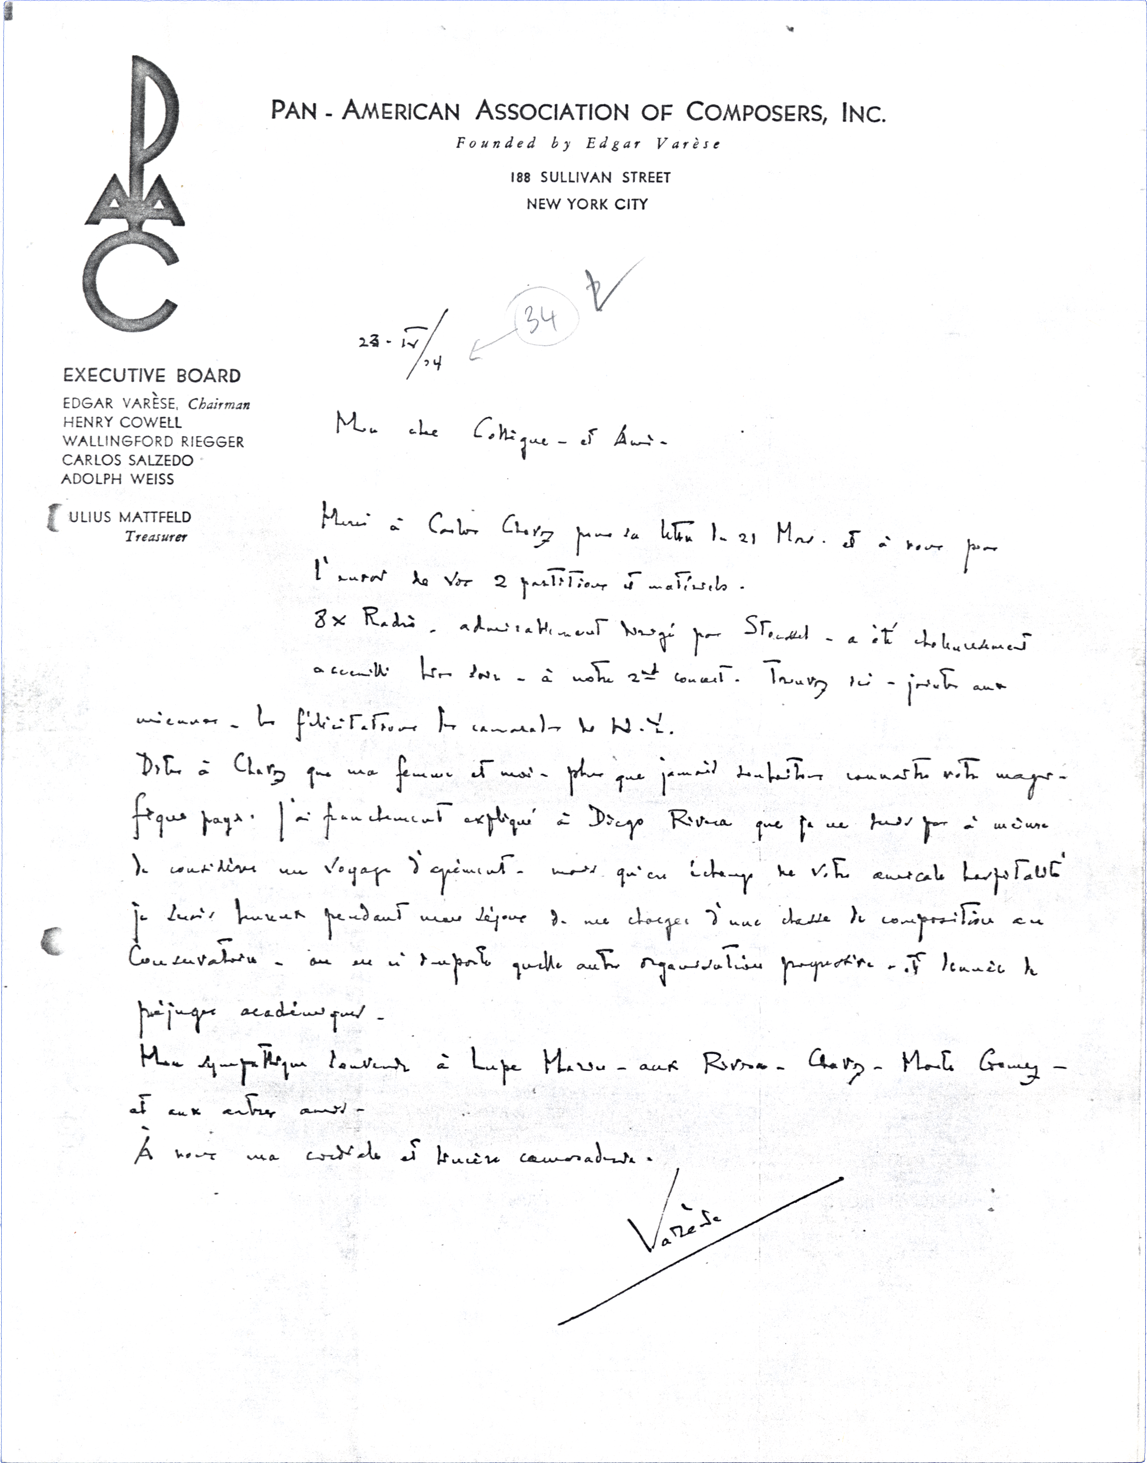 PAN - AMERICAN ASSOCIATION OF COMPOSERS, INC.
Founded by Edgar Varèse
188 SULLIVAN STREET
NEW YORK CITY
PAAC
34
23 - IV/34
EXECUTIVE BOARD
EDGAR VARÈSE, Chairman
HENRY COWELL
WALLINGFORD RIEGGER
CARLOS SALZEDO
ADOLPH WEISS
ULIUS MATTFELD
Treasurer
Mon cher Collègue - et Ami -
Merci à Carlos Chavez pour sa lettre du 21 Mars. et à vous pour
l'envoi de vos 2 partitions et matériels.
8x Radio - admirablement dirigé par Stoessel - a été chaleureusement
accueilli hier soir - à notre 2nd concert. Trouvez ici - jointes aux
miennes - les félicitations des camarades de N.Y.
Dites à Chavez que ma femme et moi - plus que jamais souhaitons connaître votre magni-
fique pays. J'ai franchement expliqué à Diego Rivera que je ne suis pas à même
de considérer un voyage d'agrément - mais qu'en échange de votre amicale hospitalité
je serais heureux pendant mon séjour de me charger d'une classe de composition au
Conservatoire - ou en n'importe quelle autre organisation progressive - et dénuée de
préjugés académiques -
Mon sympathique souvenir à Lupe Marin - aux Rivera - Chavez - Gomez -
et aux autres amis -
À vous ma cordiale et sincère camaraderie.
Varèse